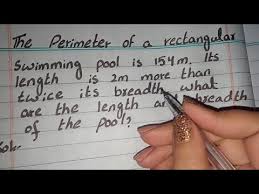 The Perimeter of a rectangular
Swimming pool is 154m. Its
length is 2m more than
twice its breadth. what
are the length and breadth
of the pool?
Sol.